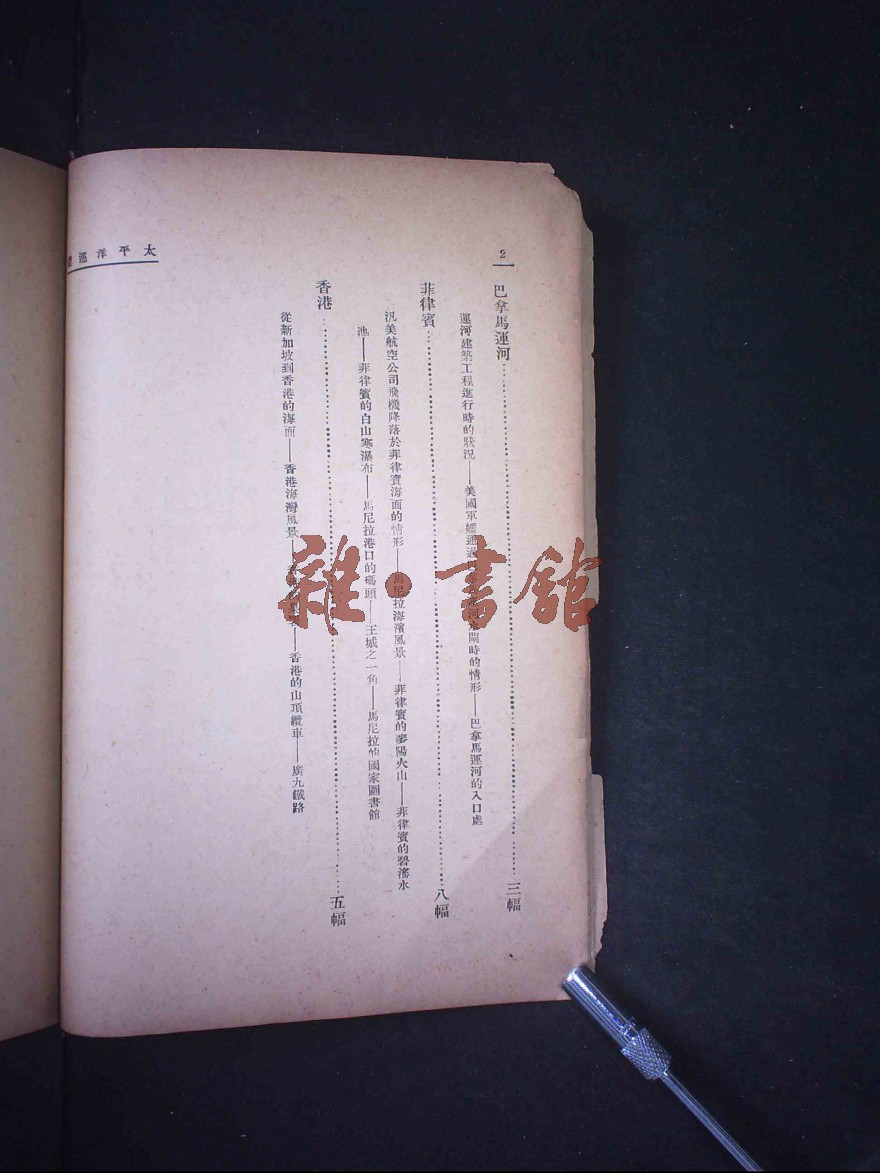 太平洋巡
2
巴拿馬運河……三幅
運河建築工程進行時的狀況——美國軍艦通過河 閘時的情形——巴拿馬運河的入口處
菲律賓……八幅
汎美航空公司飛機降落於菲律賓海面的情形——馬尼拉海濱風景——菲律賓的麥陽火山——菲律賓的碧瑤水
池——菲律賓的白山寒瀑布——馬尼拉港口的碼頭——王城之一角——馬尼拉的國家圖書館
香港……五幅
從新加坡到香港的海面——香港海灣風景——香港的山頂纜車——廣九鐵路
雜·書館